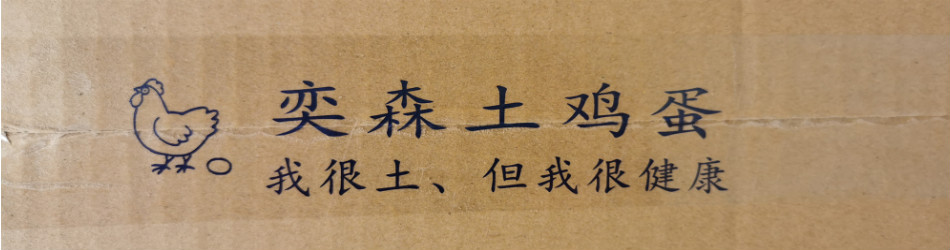 奕森土鸡蛋
我很土、但我很健康